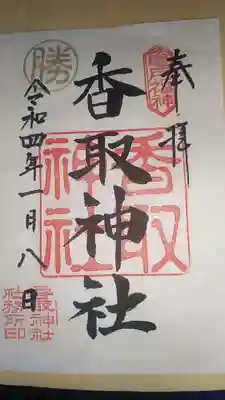 奉拝
香取神社
香取
神社
勝
令和四年一月八日
香取神社
社務所印